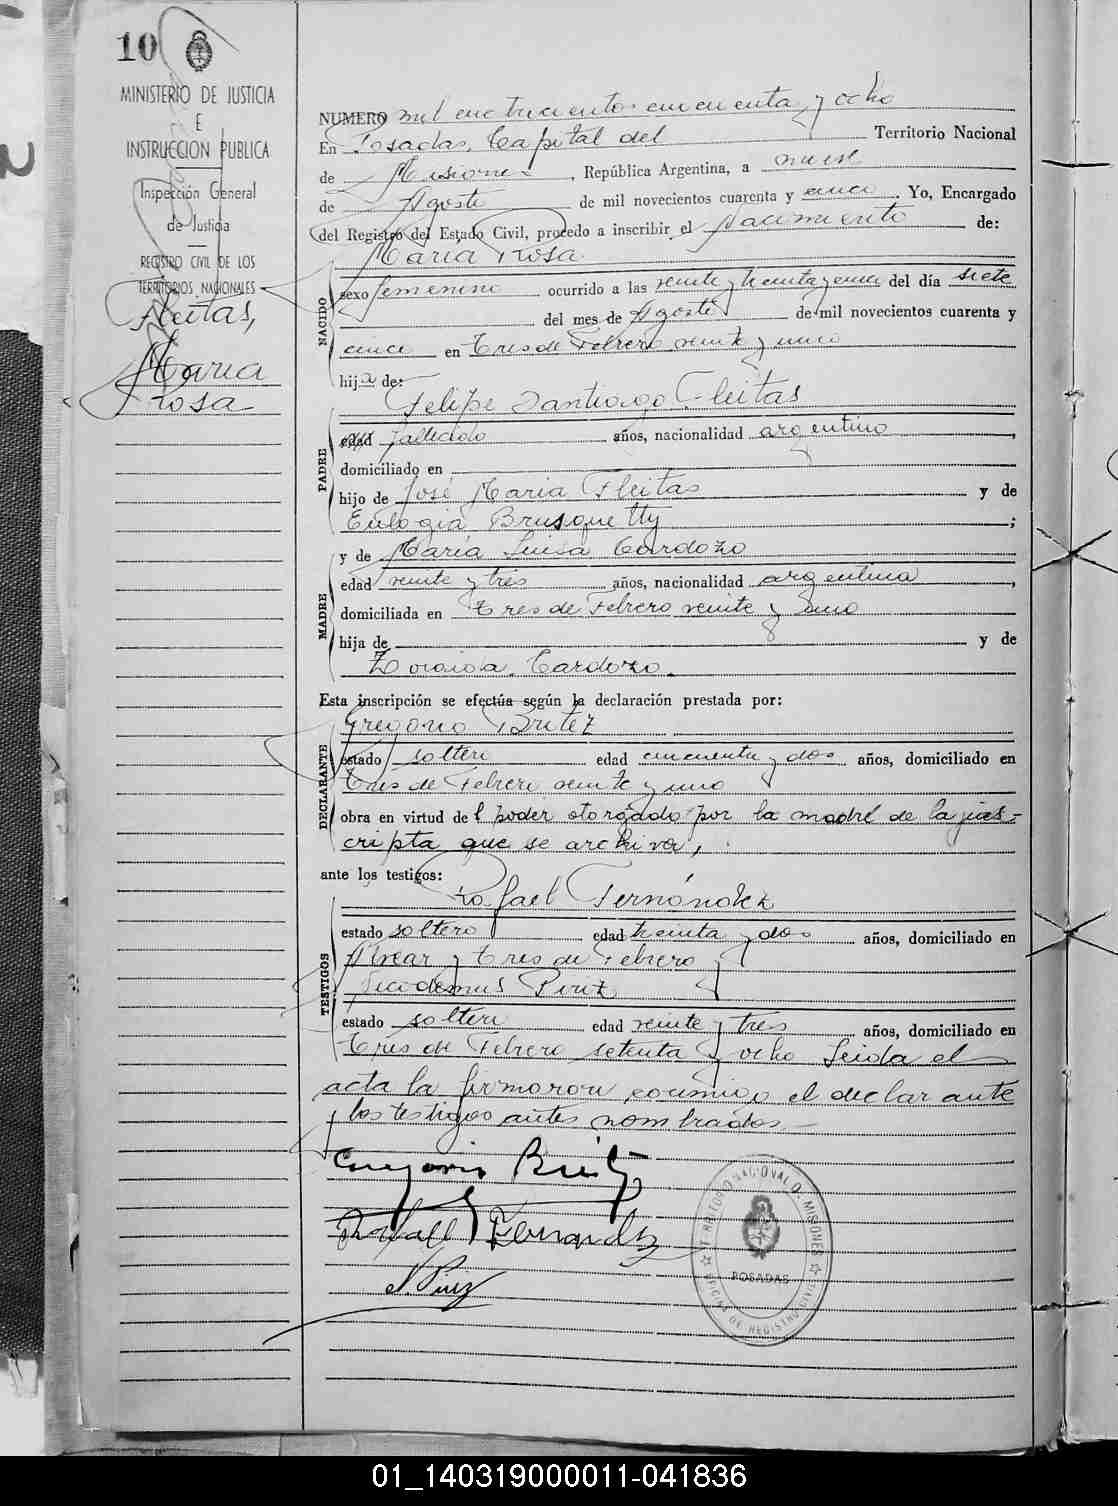 10
MINISTERIO DE JUSTICIA
E
INSTRUCCION PUBLICA
Inspección General
de Justicia
REGISTRO CIVIL DE LOS
TERRITORIOS NACIONALES
Fleitas,
María
Rosa
NUMERO mil cuatrocientos cincuenta y ocho
En Posadas, Capital del Territorio Nacional
de Misiones, República Argentina, a nueve
de Agosto de mil novecientos cuarenta y cinco. Yo, Encargado
del Registro del Estado Civil, procedo a inscribir el nacimiento de:
María Rosa
NACIDO
sexo femenino ocurrido a las veinte y treinta y cinco del día siete
del mes de Agosto de mil novecientos cuarenta y
cinco en Tres de Febrero veinte y uno
hija de:
Felipe Santiago Fleitas
PADRE
edad fallecido años, nacionalidad argentino,
domiciliado en
hijo de José María Fleitas y de
Eulogia Brusquetty;
y de María Luisa Cardozo
MADRE
edad veinte y tres años, nacionalidad argentina,
domiciliada en Tres de Febrero veinte y uno
hija de y de
Zoraida Cardozo.
Esta inscripción se efectúa según la declaración prestada por:
Gregorio Britez
DECLARANTE
estado soltero edad cincuenta y dos años, domiciliado en
Tres de Febrero veinte y uno
obra en virtud del poder otorgado por la madre de la ins=
cripta que se archiva,
ante los testigos:
Rafael Fernández
TESTIGOS
estado soltero edad treinta y dos años, domiciliado en
Alvear y Tres de Febrero y
Nicodemus Piriz
estado soltero edad veinte y tres años, domiciliado en
Tres de Febrero setenta y ocho Leida el
acta la firmaron conmigo el declarante
y los testigos antes nombrados.—
Gregorio Britez
Rafael Fernandez
N Piriz
TERRITORIO NACIONAL D. MISIONES
POSADAS
OFICINA DE REGISTRO CIVIL
01_140319000011-041836